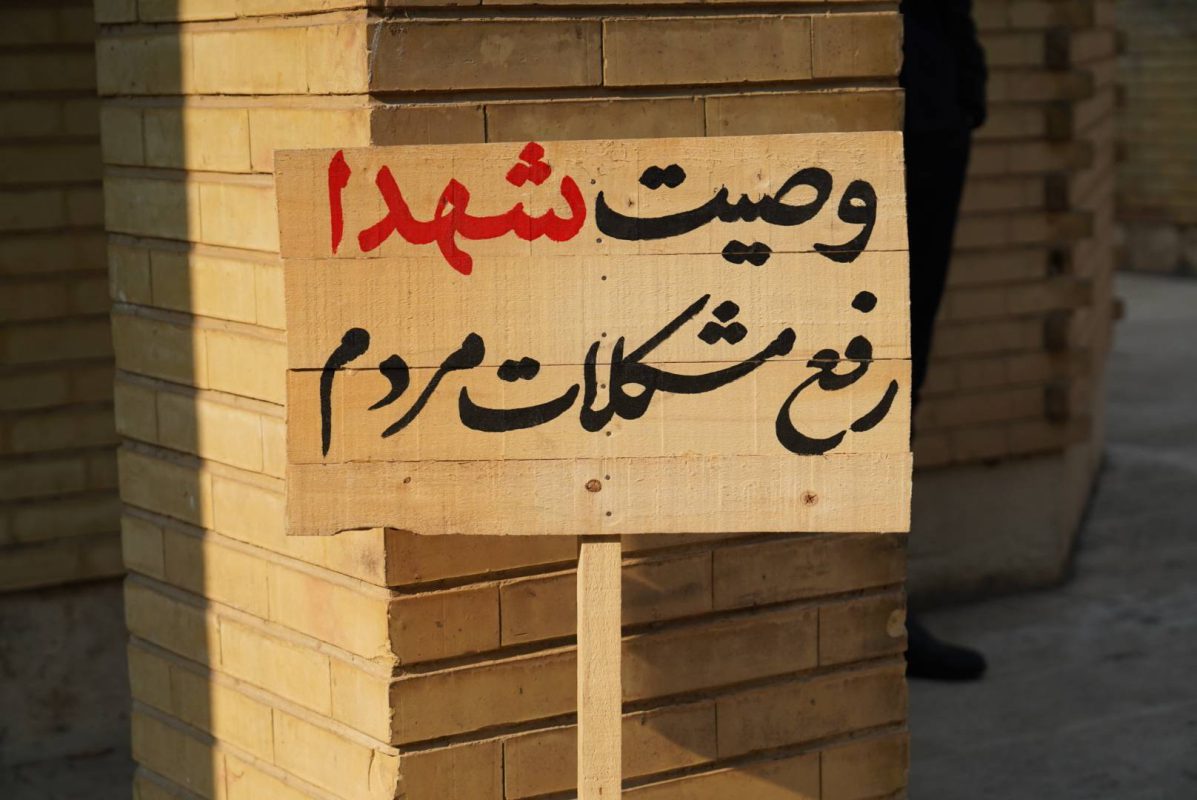 وصیت شهدا
رفع مشکلات مردم